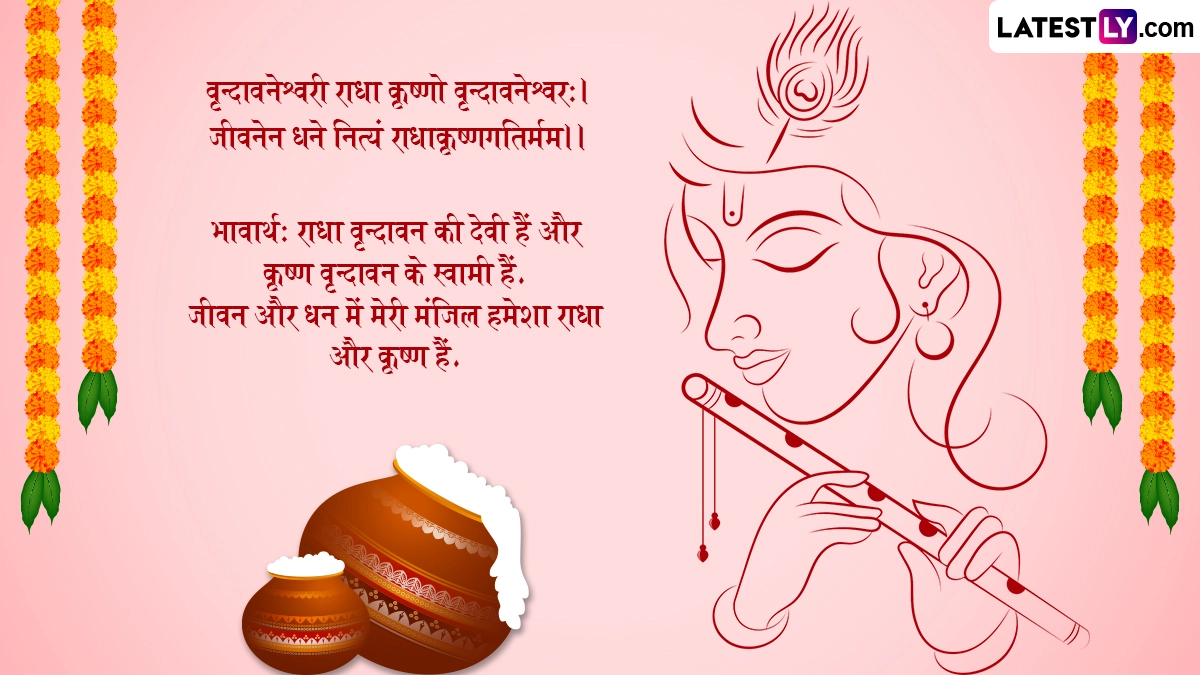 LATESTLY.com
वृन्दावनेश्वरी राधा कृष्णो वृन्दावनेश्वरः।
जीवनेन धने नित्यं राधाकृष्णगतिर्मम।।
भावार्थः राधा वृन्दावन की देवी हैं और
कृष्ण वृन्दावन के स्वामी हैं.
जीवन और धन में मेरी मंजिल हमेशा राधा
और कृष्ण हैं.